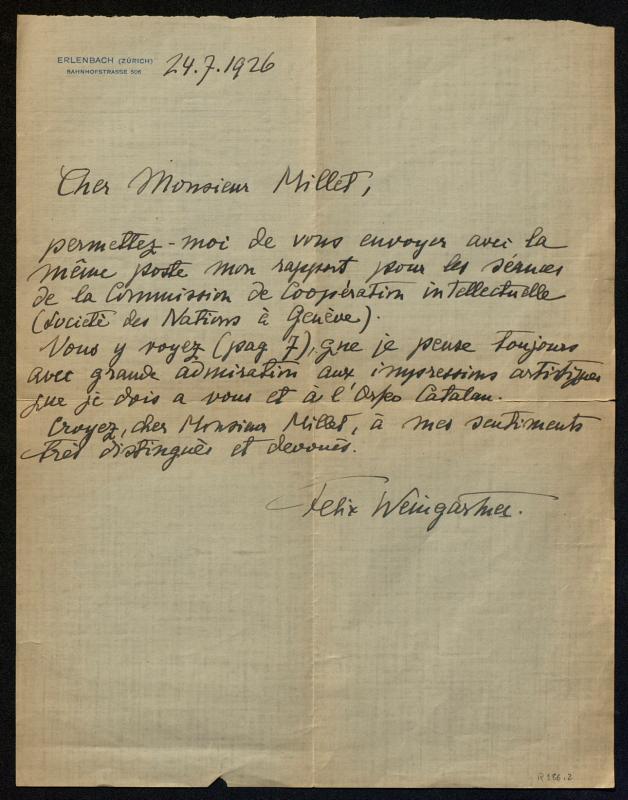 ERLENBACH (ZÜRICH)
BAHNHOFSTRASSE 506
24.7.1926
Cher Monsieur Millet,
permettez-moi de vous envoyer avec la
même poste mon rapport pour les séances
de la Commission de Coopération intellectuelle
(Societé des Nations à Genève).
Vous y voyez (pag 7), que je pense toujours
avec grande admiration aux impressions artistiques
que je dois a vous et à l'Orfeo Catalan.
Croyez, cher Monsieur Millet, à mes sentiments
très distingués et devoués.
Felix Weingartner.
R 186.2